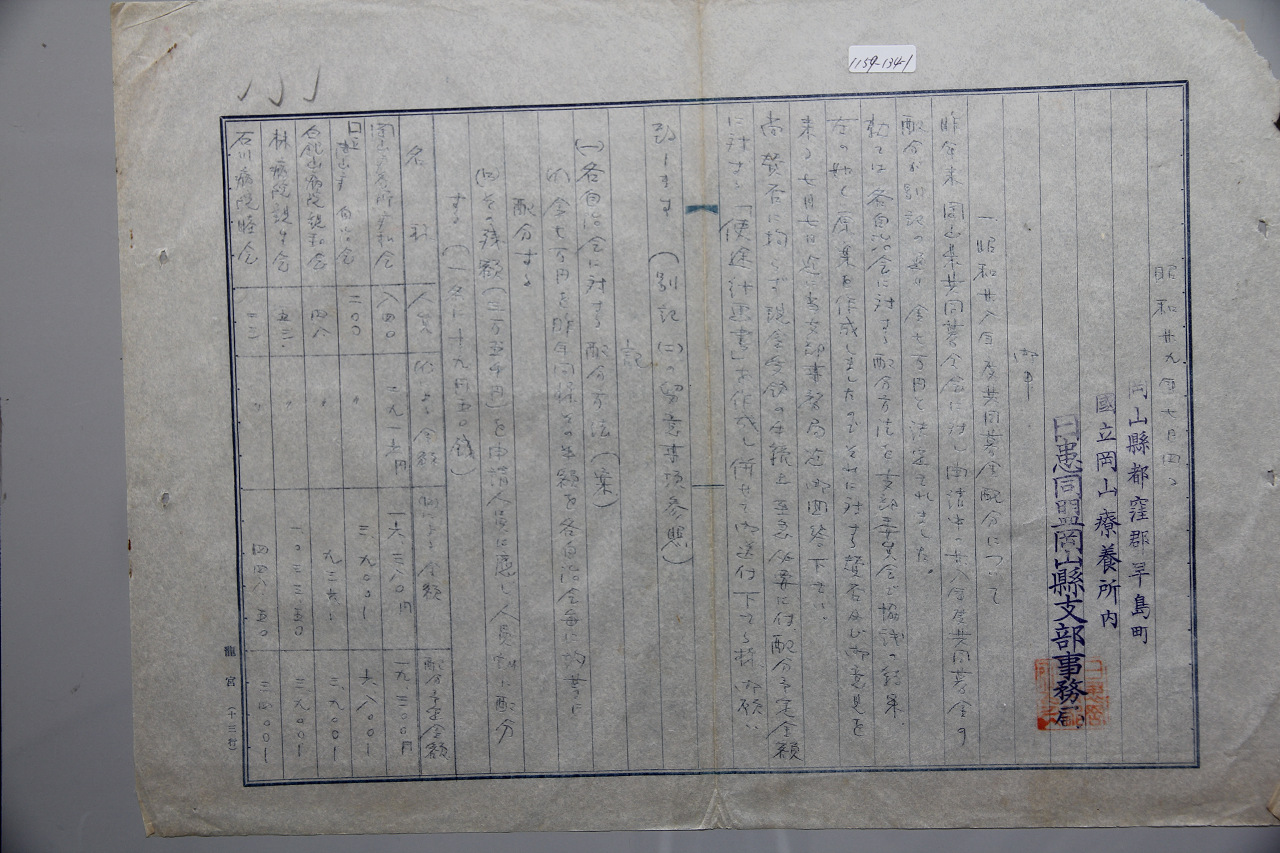 1159-134-1
昭和廿九年七月四日
岡山縣都窪郡早島町
國立岡山療養所内
日患同盟岡山縣支部事務局
御中
一、昭和廿八年度共同募金配分について
昨年来岡山県共同募金会に対し申請中の廿八年度共同募金の
配分が別記の通り金七万円と決定されました。
就ては各自治会に対する配分方法を支部委員会で協議の結果、
左の如く原案を作成しましたのでそれに対する賛否及び御意見を
来る七月七日迄に当支部事務局迄御回答下さい。
尚賛否に拘らず現金受領の手続上至急必要に付配分予定金額
に対する「使途計画書」を作成し併せて御送付下さる様御願い
致します (別記(二)の留意事項参照)
記
(一)各自治会に対する配分方法(案)
(イ)金七万円を昨年同様その半額を各自治会毎に均等に
配分する
(ロ)その残額(三万五千円)を申請人員に応じ人員割に配分
する (一名に十九円五〇銭)
名称 人員 (イ)による金額 (ロ)による金額 配分予定金額
岡山療養所 八四〇 二、九一六円 一六、三八〇円 一九、三〇〇円
自治会 二〇〇 〃 三、九〇〇 六、八〇〇
病院親和会 四八 〃 九三六 三、九〇〇
林病院親生会 五三 〃 一、〇三三.五〇 三、九〇〇
石川病院睦会 二三 〃 四四八.五〇 三、四〇〇
龍宮 (十三行)